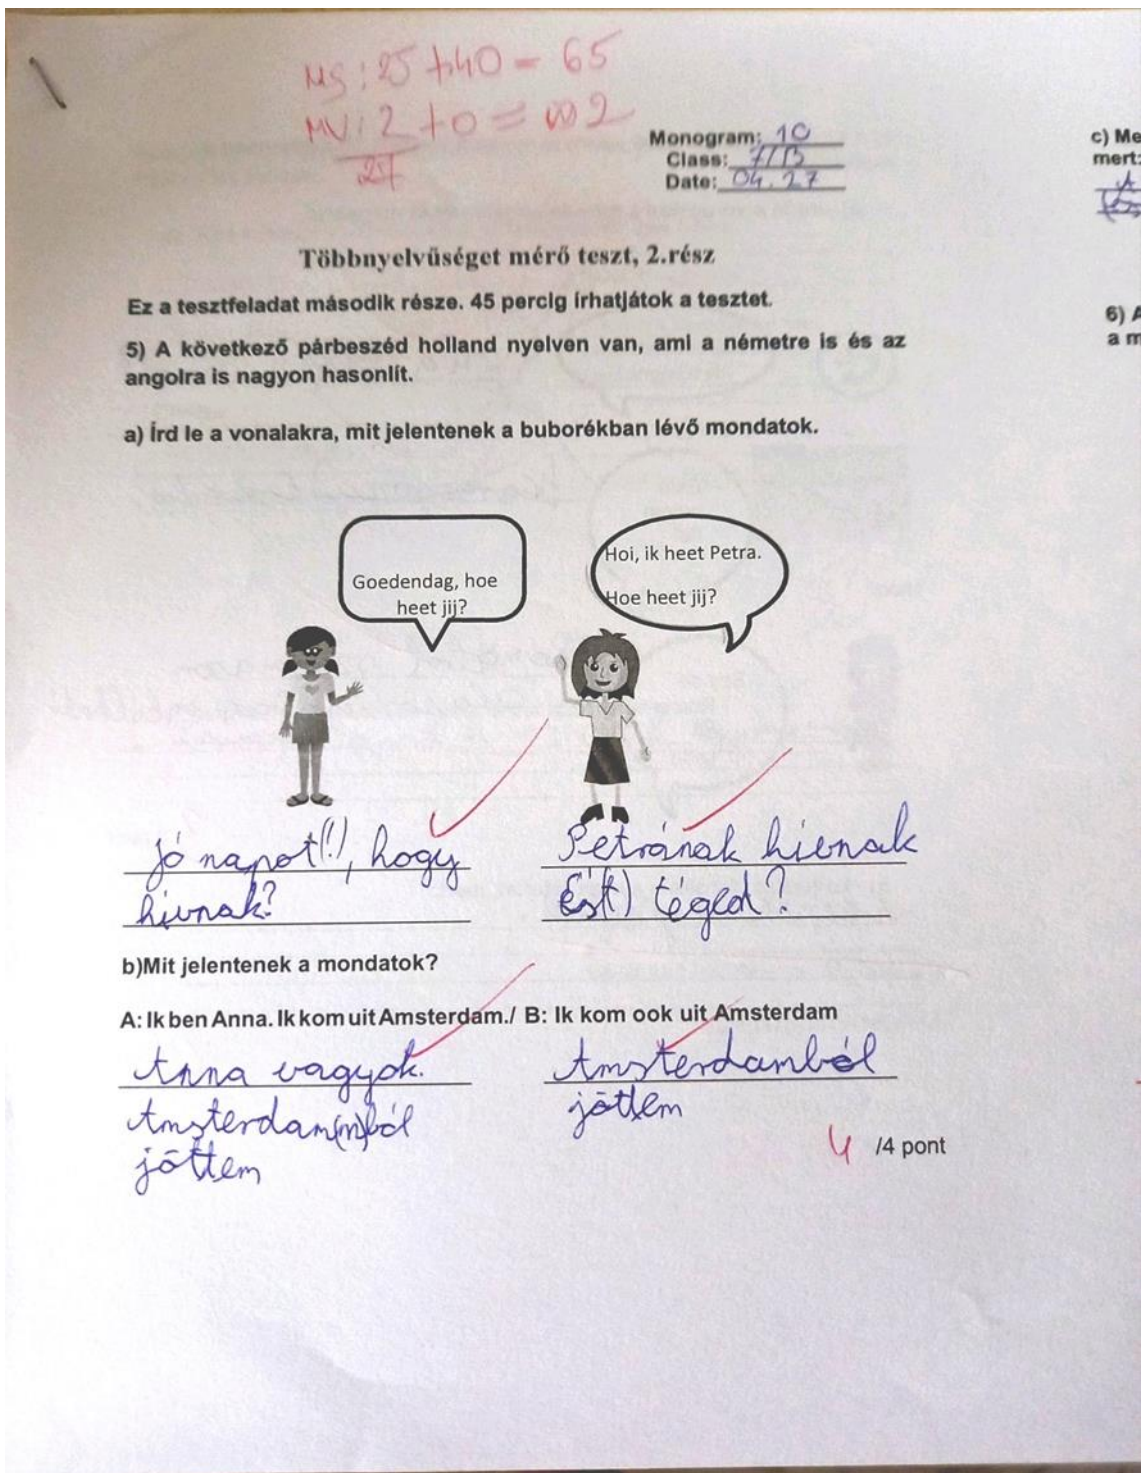 MS: 25 + 40 = 65
MV: 2 + 0 = 2
27
Monogram: 10
Class: 7/B
Date: 04.27
c) Me
mert:
Többnyelvűséget mérő teszt, 2.rész
Ez a tesztfeladat második része. 45 percig írhatjátok a tesztet.
5) A következő párbeszéd holland nyelven van, ami a németre is és az
angolra is nagyon hasonlít.
6) A
a m
a) Írd le a vonalakra, mit jelentenek a buborékban lévő mondatok.
Goedendag, hoe
heet jij?
Hoi, ik heet Petra.
Hoe heet jij?
Jó napot(!), hogy
hívnak?
Petrának hívnak
És(t) téged?
b)Mit jelentenek a mondatok?
A: Ik ben Anna. Ik kom uit Amsterdam./ B: Ik kom ook uit Amsterdam
Anna vagyok.
Amsterdam(m)ból
jöttem
Amsterdamból
jöttem
4 /4 pont